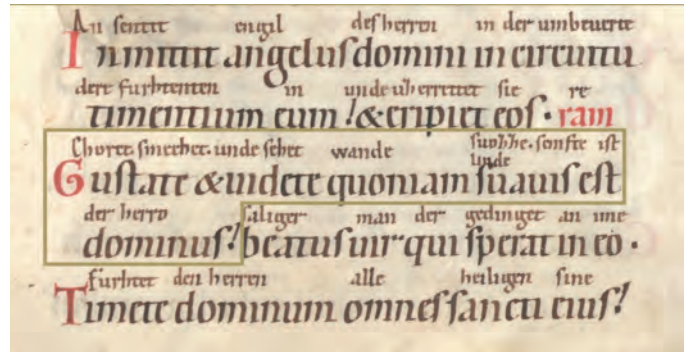 An sentit engil des herren in der umbeuerte
Inmittit angelus domini in circuitu
dere furhtenten in unde uberrittet sie re
timentium eum !&eripiet eos. ram
Choret. smechet. unde sehet wande suohhe. sonfte ist
unde
Gustate &uidete quoniam suauis est
der herro saliger man der gedinget an ime
dominus! beatus uir qui sperat in eo.
furhtet den herren alle heiligen sine
Timete dominum omnes sancti eius!